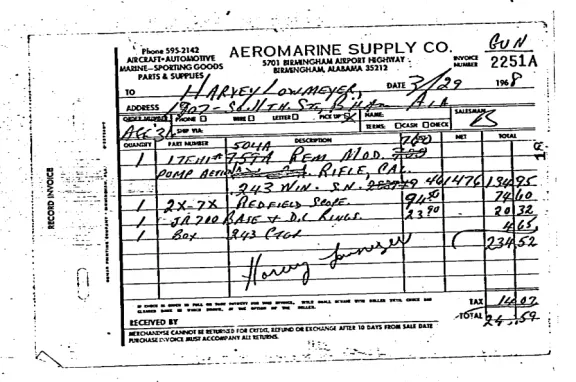 GUN
Phone 595-2142
AIRCRAFT•AUTOMOTIVE
MARINE—SPORTING GOODS
PARTS & SUPPLIES
AEROMARINE SUPPLY CO.
5701 BIRMINGHAM AIRPORT HIGHWAY
BIRMINGHAM, ALABAMA 35212
INVOICE NUMBER 2251A
TO HARVEY LOWMEYER, DATE 3/29 1968
ADDRESS 1907 - So. 11TH. ST. B'HAM ALA
ORDER NUMBER PHONE WIRE LETTER PICK UP NAME: SALESMAN
SHIP VIA: TERMS: CASH CHECK
QUANTITY PART NUMBER DESCRIPTION NET TOTAL
1 REM MOD. 760
PUMP ACTION RIFLE, CAL.
.243 WIN. S.N. 461476 134 95
1 2X-7X REDFIELD SCOPE 94 90 74 60
1 JR 700 BASE & RINGS 23 90 20 32
1 BOX 243 4 65
Harvey Lowmeyer 234 52
TAX 14 07
TOTAL 59
RECEIVED BY
MERCHANDISE CANNOT BE RETURNED FOR CREDIT, REFUND OR EXCHANGE AFTER 10 DAYS FROM SALE DATE
PURCHASE INVOICE MUST ACCOMPANY ALL RETURNS.
RECORD INVOICE